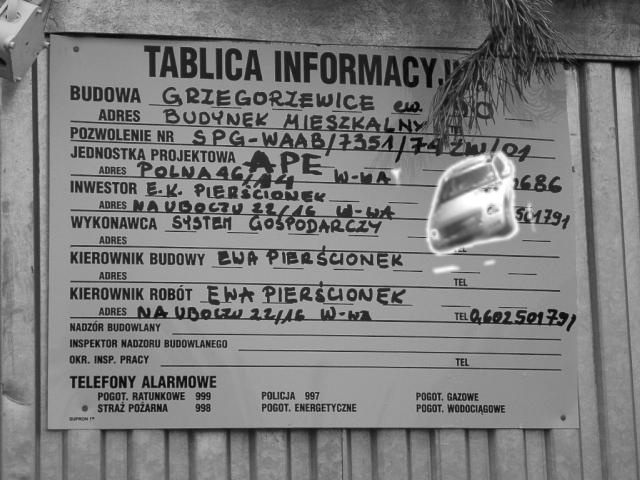 TABLICA INFORMACYJ
BUDOWA GRZEGORZEWICE ew.
ADRES BUDYNEK MIESZKALNY
POZWOLENIE NR SPG-WAAB/7351/74 ZW/01
JEDNOSTKA PROJEKTOWA APE
ADRES POLNA 46/44 W-WA 686
INWESTOR E.K. PIERŚCIONEK
ADRES NA UBOCZU 22/16 W-WA 501791
WYKONAWCA SYSTEM GOSPODARCZY
ADRES TEL
KIEROWNIK BUDOWY EWA PIERŚCIONEK
ADRES TEL
KIEROWNIK ROBÓT EWA PIERŚCIONEK
ADRES NA UBOCZU 22/16 W-wa TEL 0,602501791
NADZÓR BUDOWLANY
INSPEKTOR NADZORU BUDOWLANEGO
OKR. INSP. PRACY TEL
TELEFONY ALARMOWE
POGOT. RATUNKOWE 999 POLICJA 997 POGOT. GAZOWE
STRAŻ POŻARNA 998 POGOT. ENERGETYCZNE POGOT. WODOCIĄGOWE